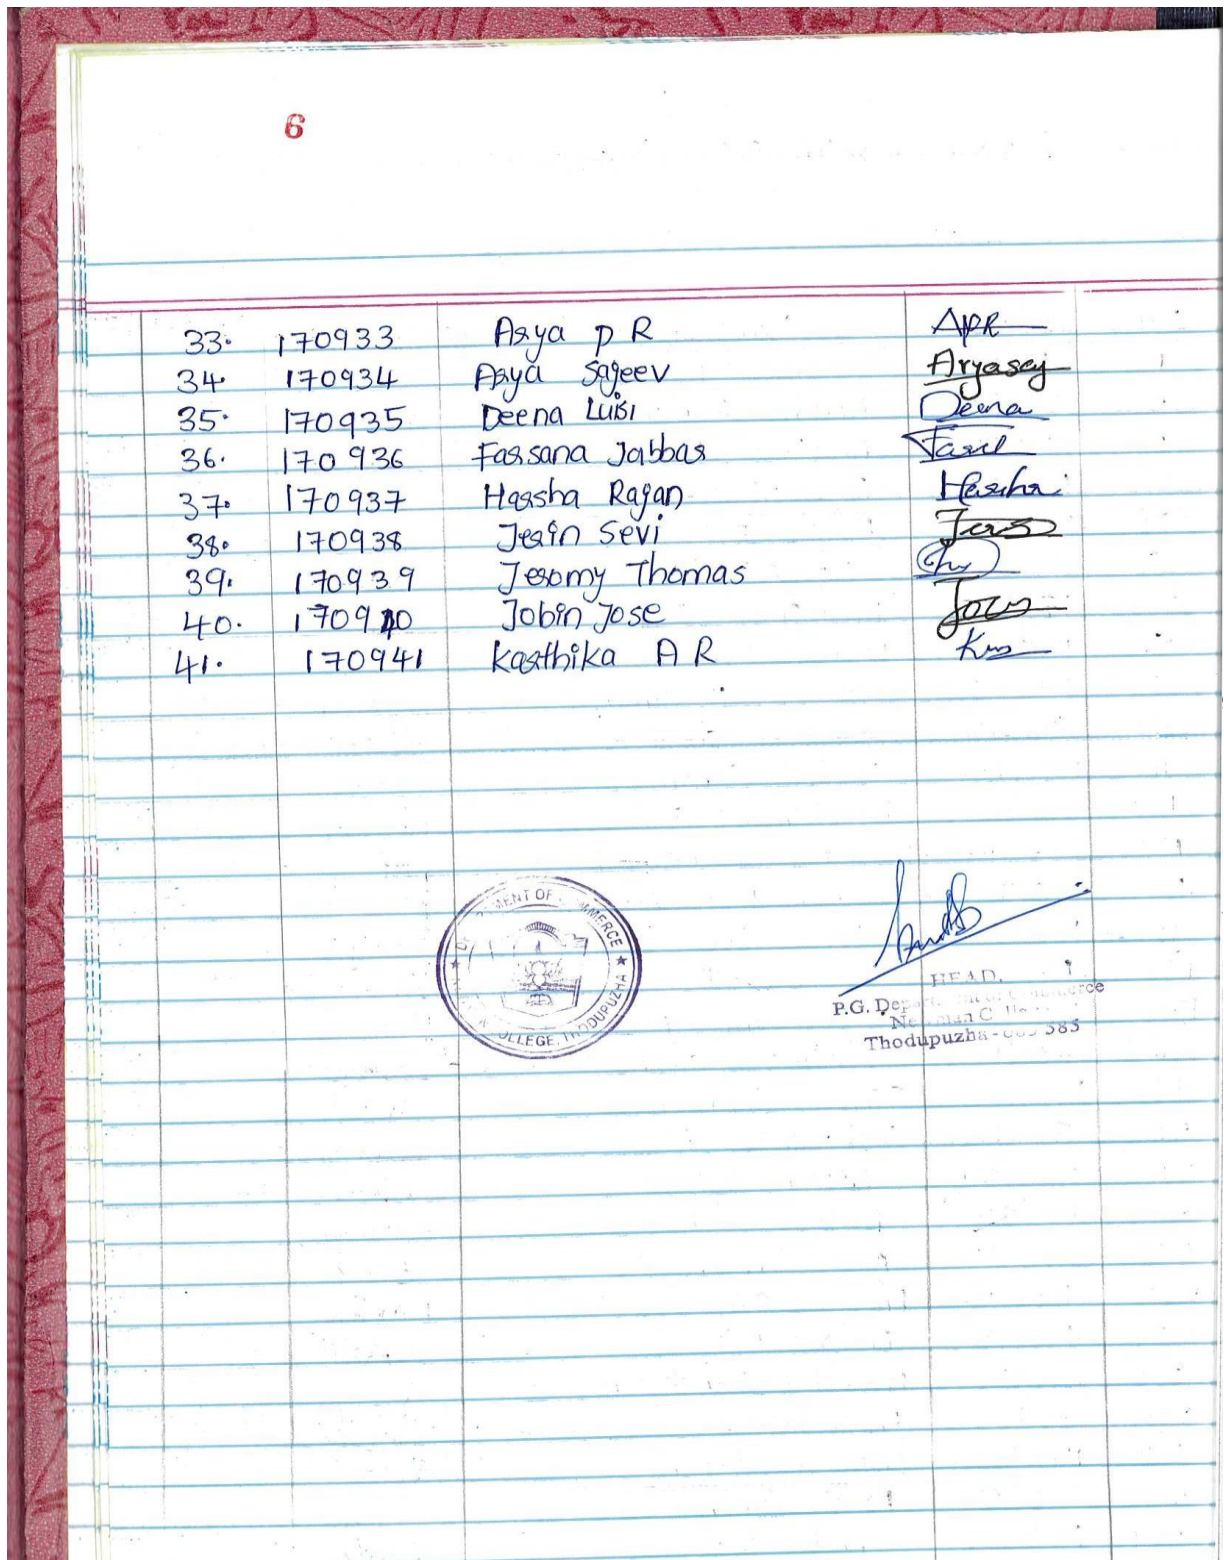 6
33. 170933 Arya P R APR
34. 170934 Arya Sajeev Aryasaj
35. 170935 Deena Luisi Deena
36. 170936 Farsana Jabbar
37. 170937 Harsha Rajan Harsha
38. 170938 Jerin Sevi
39. 170939 Jeromy Thomas
40. 170940 Jobin Jose
41. 170941 Karthika A R
OF COMMERCE
COLLEGE, THODUPUZHA
HEAD,
P.G. Department of Commerce
Newman College
Thodupuzha - 685 585